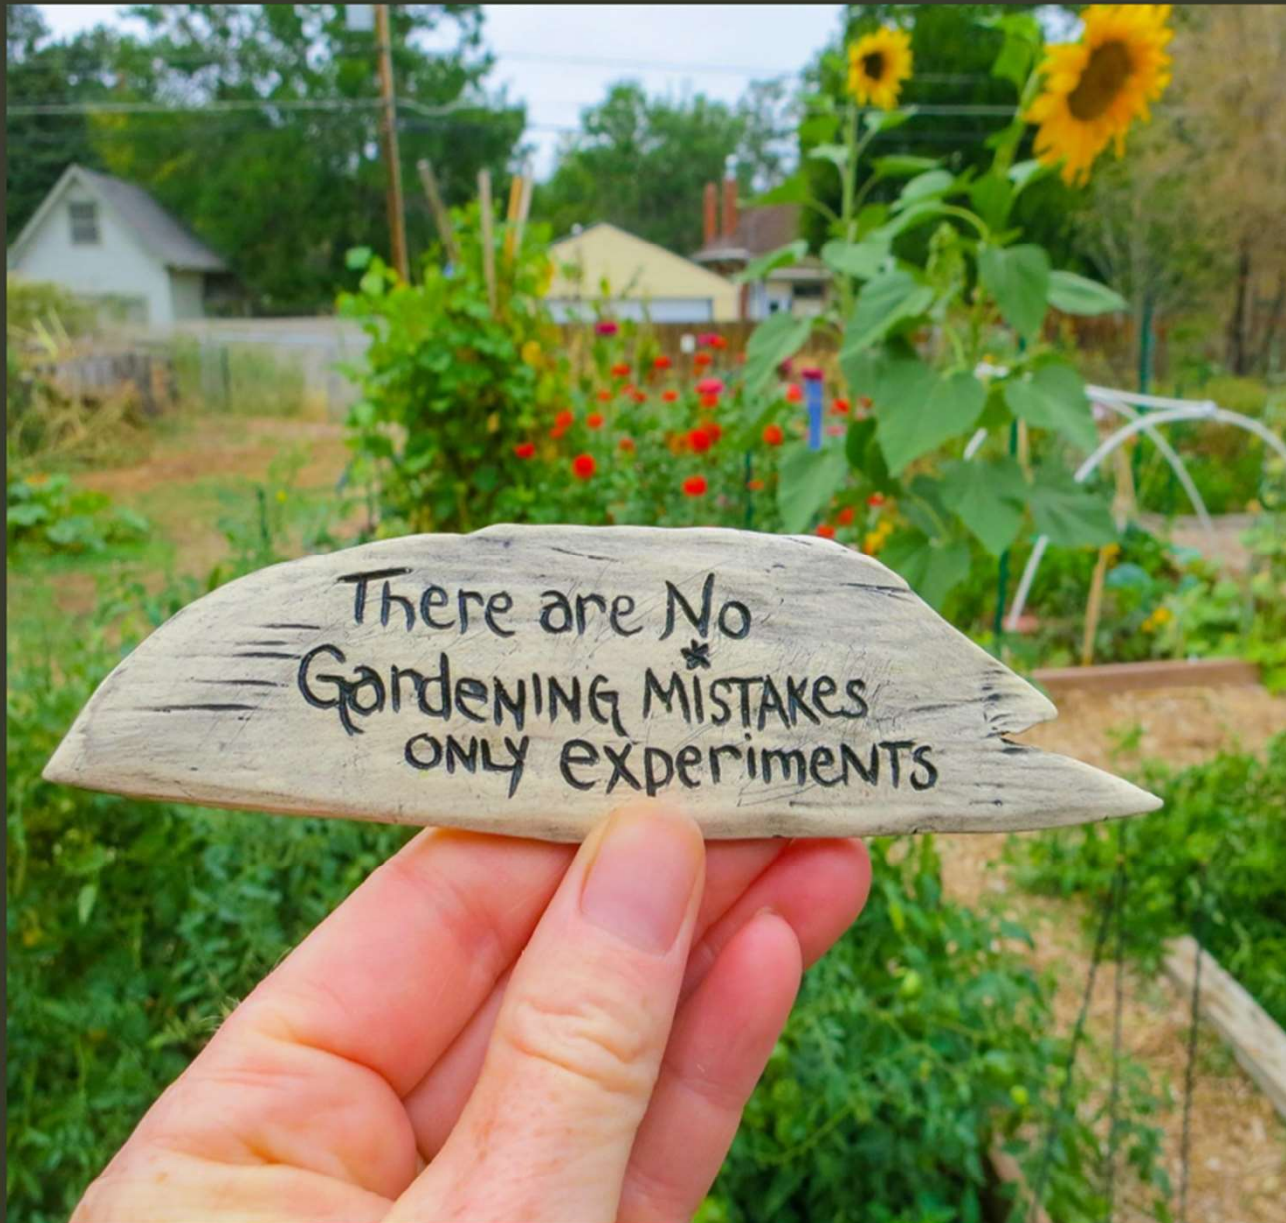 There are No
GardeNING MiSTAKES
ONLY experimeNTS